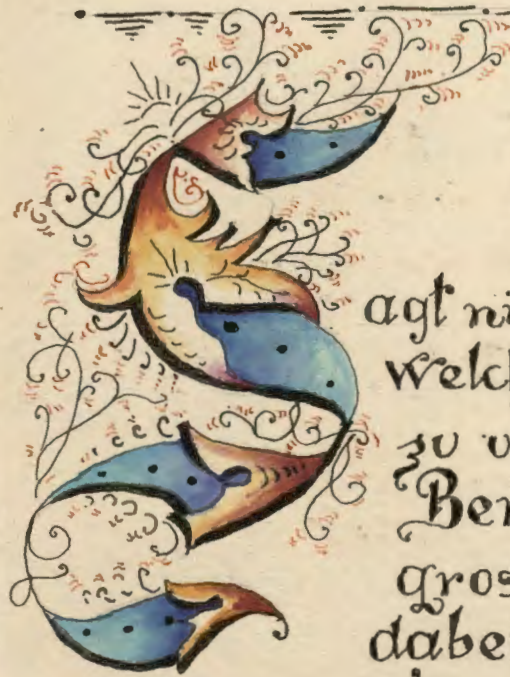 Sagt ni
welch
zu v
Ber
gros
dabe